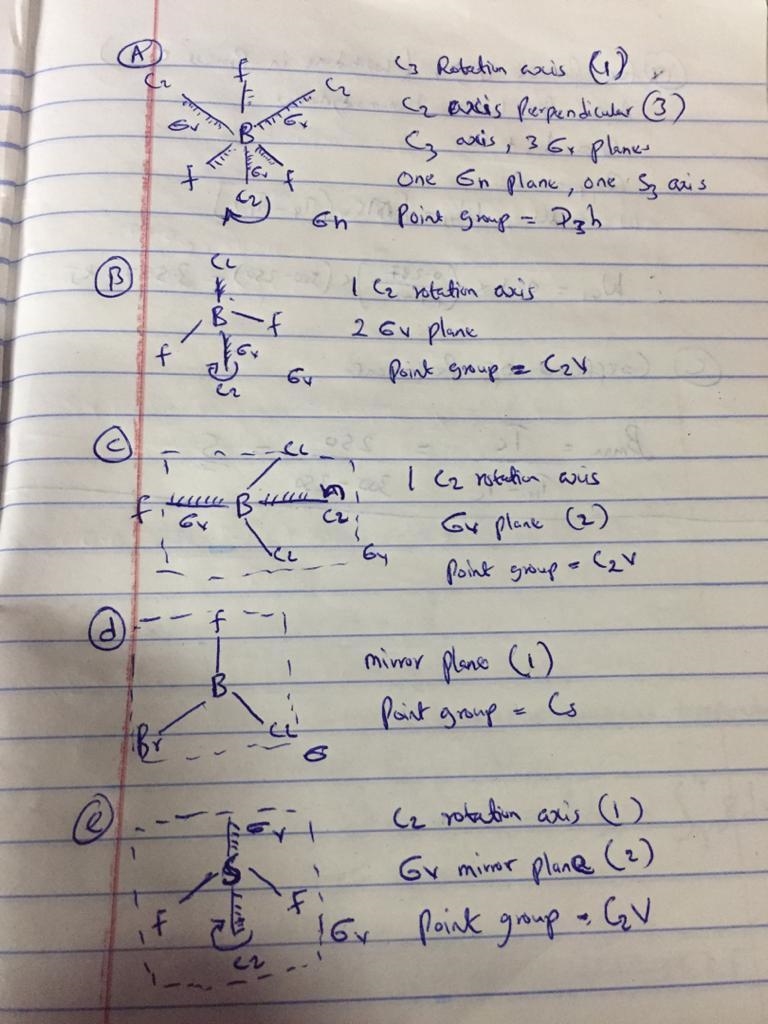 A
f
C2
C2
C3 Rotation axis (1)
C2 axis Perpendicular (3)
σv
B
σv
C3 axis, 3 σv planes
f
σv
f
One σh plane, one S3 axis
C2
σh
Point group = D3h
B
Cl
B
f
f
σv
σv
C2
1 C2 rotation axis
2 σv plane
Point group = C2V
C
Cl
f
σv
B
C2
Cl
σv
1 C2 rotation axis
σv plane (2)
Point group = C2V
d
f
B
Br
Cl
σ
mirror plane (1)
Point group = Cs
e
σv
S
f
f
σv
C2
C2 rotation axis (1)
σv mirror plane (2)
Point group = C2V